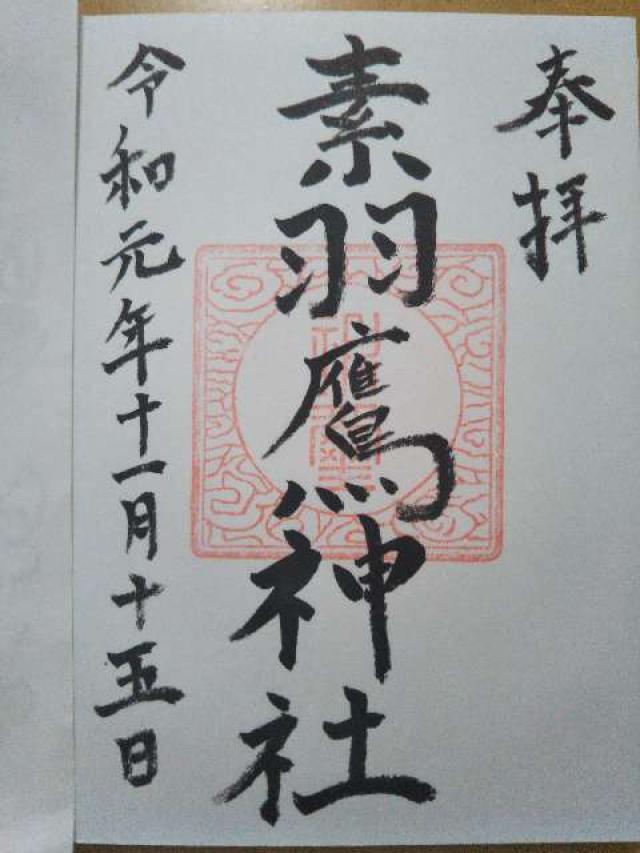 奉拝
素羽鷹神社
令和元年十一月十五日